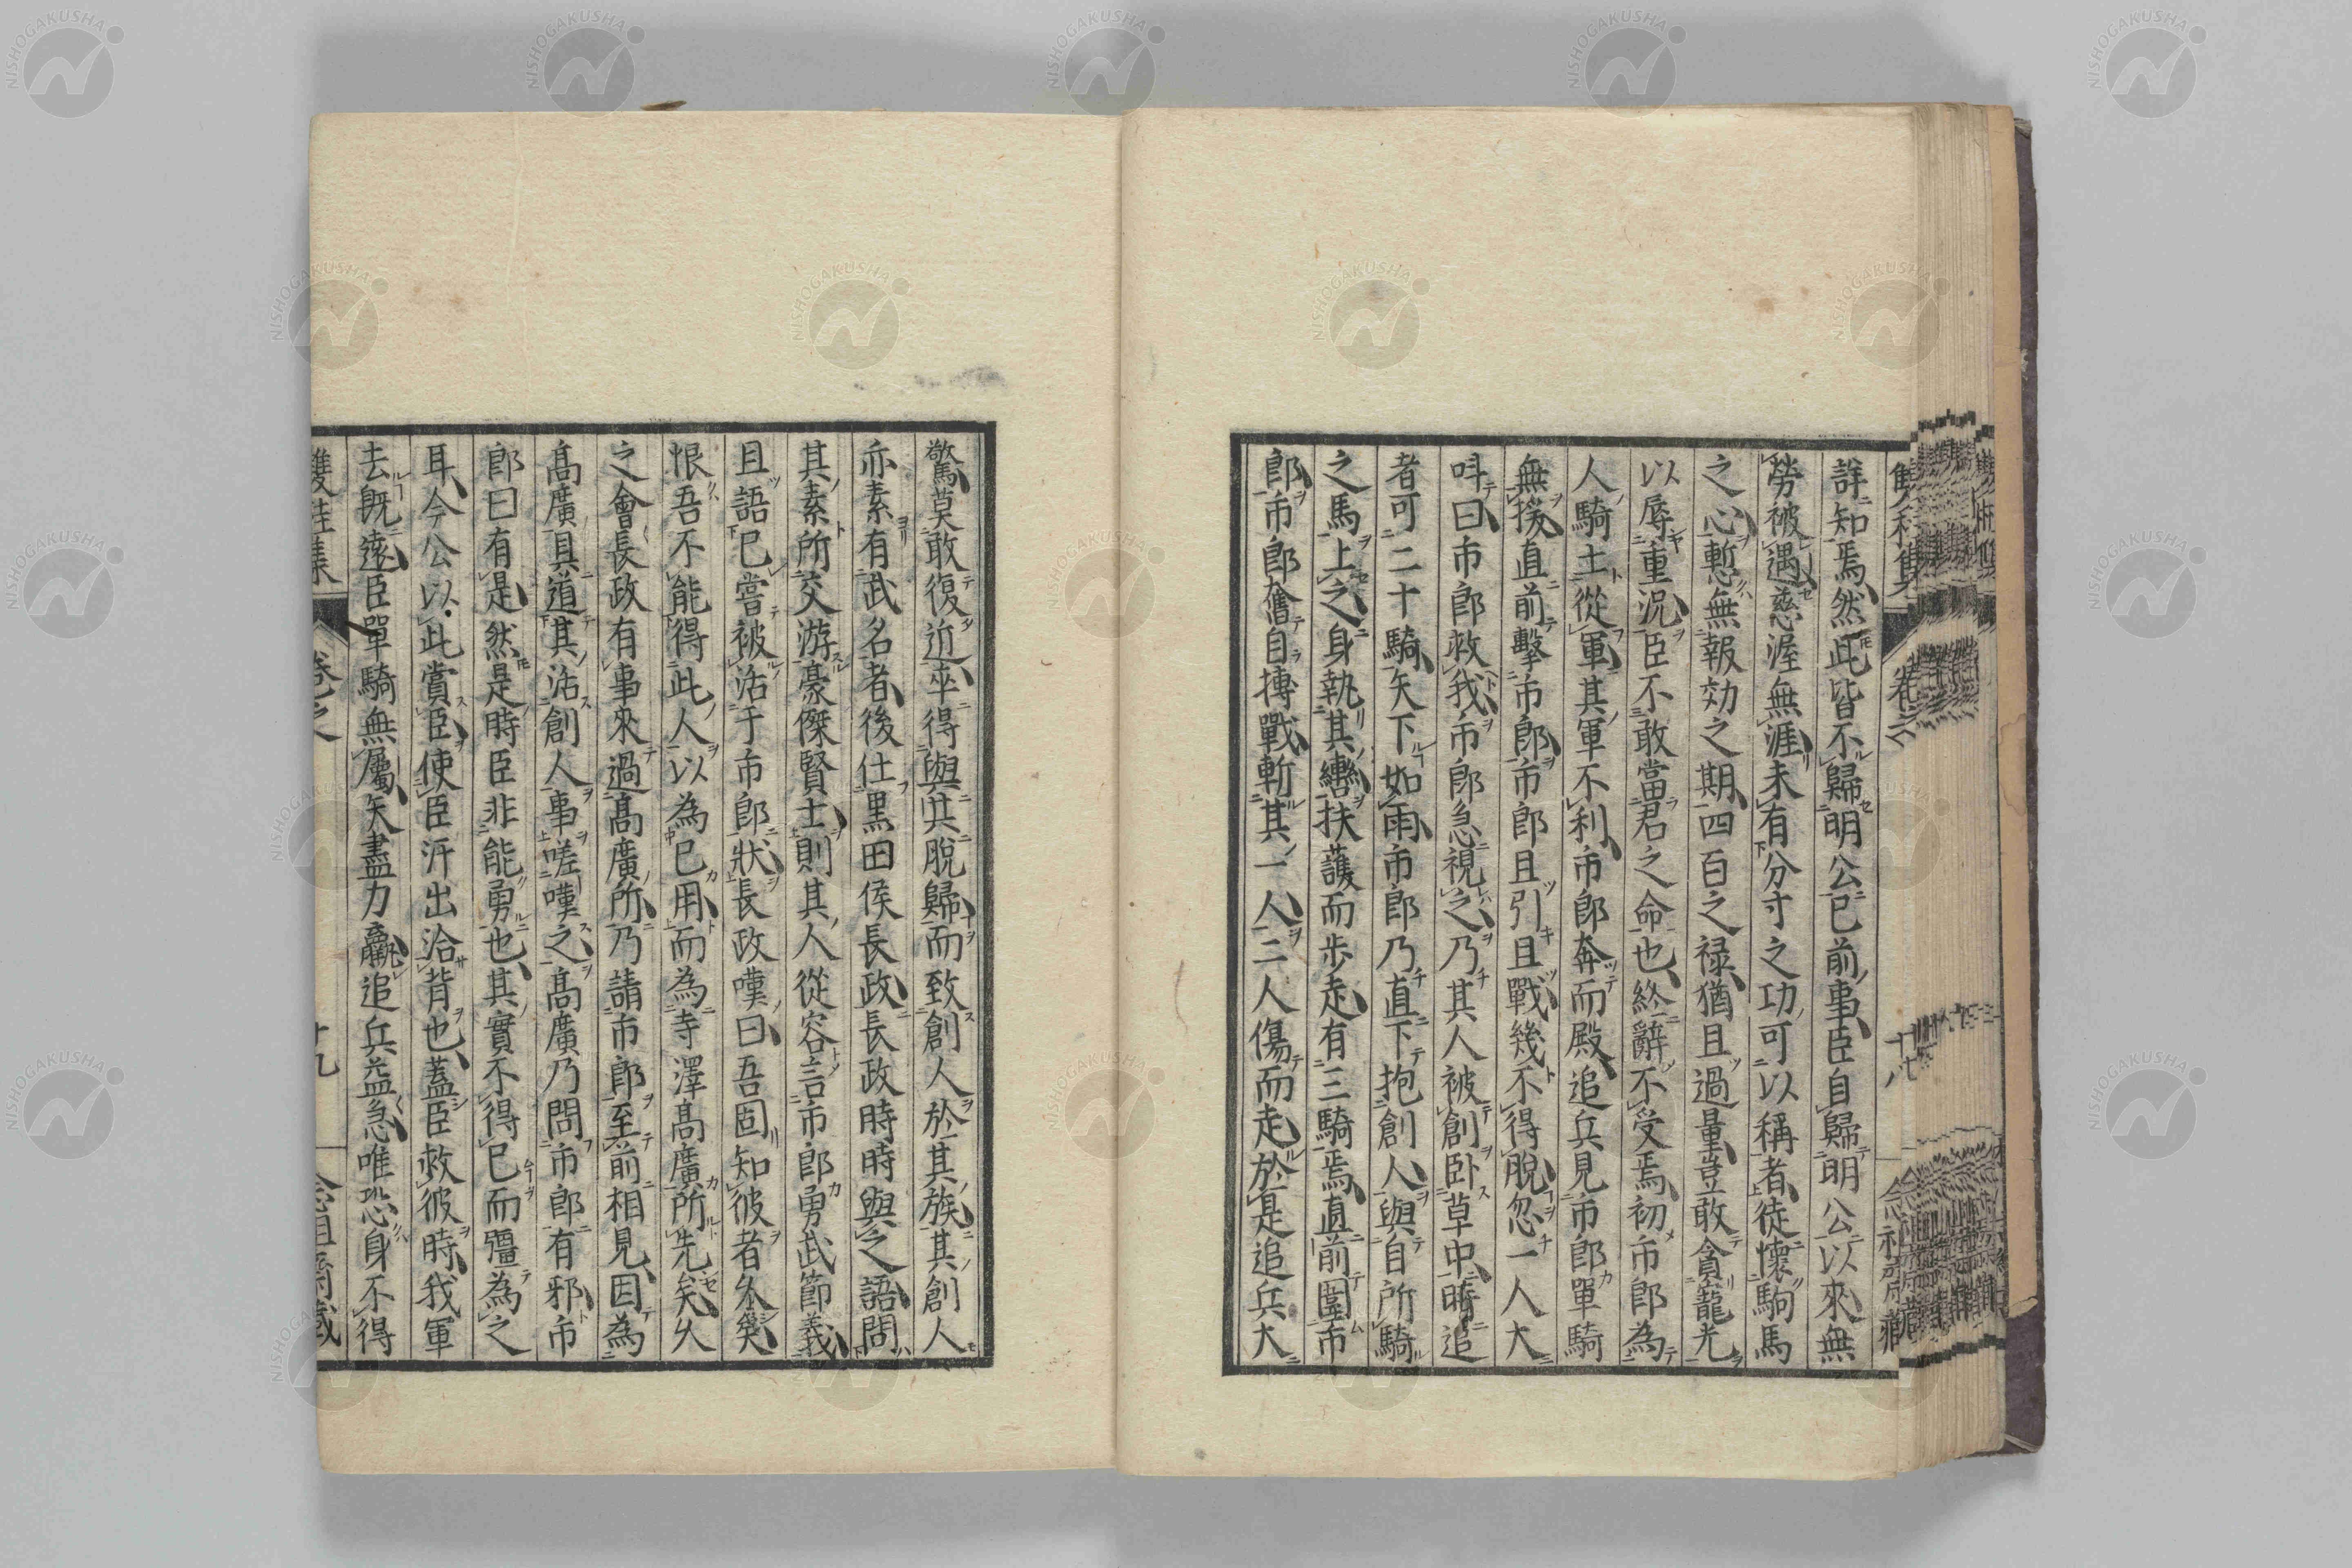 詳知焉然此皆不歸明公已前事臣自歸明公以來無
勞被遇慈渥無涯未有分寸之功可以稱者徒懷駒馬
之心慙無報効之期四百之祿猶且過量豈敢貪寵光
以辱重況臣不敢當君之命也終辭不受焉初市郎為
人騎士從軍其軍不利市郎奔而殿追兵見市郎單騎
無援直前擊市郎市郎且引且戰幾不得脫忽一人大
呌曰市郎救我市郎急視之乃其人被創臥草中時追
者可二十騎矢下如雨市郎乃直下抱創人與自所騎
之馬上之身執其轡扶護而步走有三騎焉直前圍市
郎市郎奮自搏戰斬其一人二人傷而走於是追兵大
驚莫敢復近卒得與共脫歸而致創人於其族其創人
亦素有武名者後仕黑田侯長政長政時時與之語問
其素所交游豪傑賢士則其人從容言市郎勇武節義
且語已嘗被活于市郎狀長政嘆曰吾固知彼者久矣
恨吾不能得此人以為已用而為寺澤高廣所先矣久
之會長政有事來過高廣所乃請市郎至前相見因為
高廣具道其活創人事嗟嘆之高廣乃問市郎有邪市
郎曰有是然是時臣非能勇也其實不得已而彊為之
耳今公以此賞臣使臣汗出洽背也蓋臣救彼時我軍
去既遠臣單騎無屬矢盡力羸追兵益急唯恐身不得
雙桂集
卷之六
十八
雙桂集
卷之六
十九
NISHOGAKUSHA